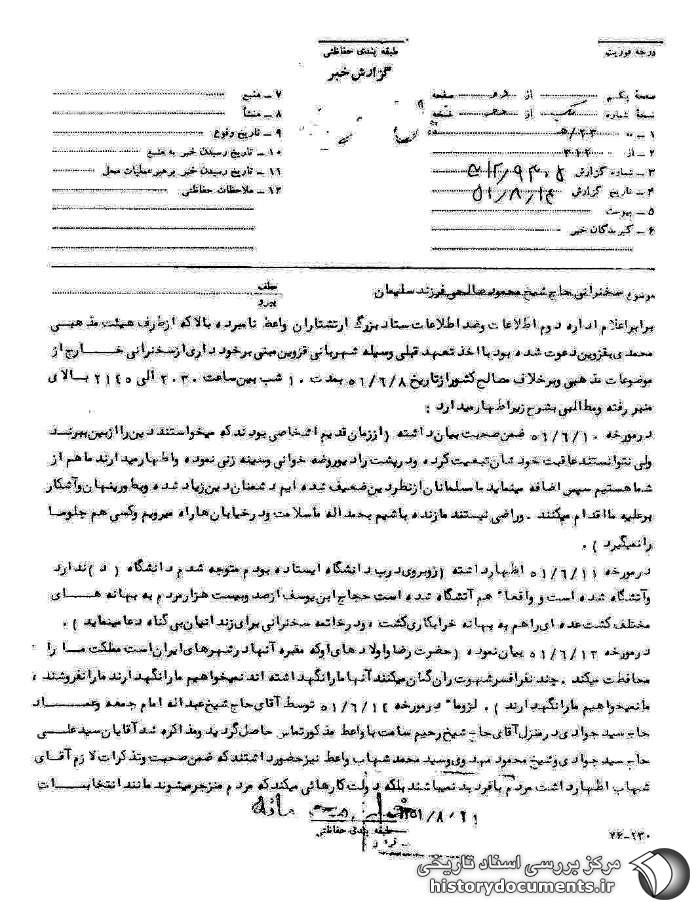 درجه فوریت
طبقه بندی حفاظتی
گزارش خبر
صفحه یکم از دو صفحه
نسخه شماره یک از نسخه
۱ - به ۵/۲۳
۲ - از ۳۰۲
۳ - شماره گزارش
۴ - تاریخ گزارش ۵۱/۸/۱۴
۵ - پیوست
۶ - گیرندگان خبر
۷ - منبع
۸ - منشأ
۹ - تاریخ وقوع
۱۰ - تاریخ رسیدن خبر به منبع
۱۱ - تاریخ رسیدن خبر برهبر عملیات محل
۱۲ - ملاحظات حفاظتی
موضوع سخنرانی حاج شیخ محمود صالحی فرزند سلیمان
عطف
پیرو
برابر اعلام اداره دوم اطلاعات و ضد اطلاعات ستاد بزرگ ارتشتاران واعظ نامبرده بالا که از طرف هیئت مذهبی
محمدی بقزوین دعوت شده بود با اخذ تعهد قبلی وسیله شهربانی قزوین مبنی برخودداری از سخنرانی خارج از
موضوعات مذهبی و برخلاف مصالح کشور از تاریخ ۵۱/۶/۸ بمدت ۱۰ شب بین ساعت ۲۰۳۰ الی ۲۱۴۵ بالای
منبر رفته و مطالبی بشرح زیر اظهار میدارد :
در مورخه ۵۱/۶/۱۰ ضمن صحبت بیان داشته ( از زمان قدیم اشخاصی بودند که میخواستند دین را از بین ببرند
ولی نتوانستند عاقبت خودشان تبعیت کرده و در پشت رادیو روضه خوانی و سینه زنی نموده و اظهار میدارند ما هم از
شما هستیم سپس اضافه مینماید ما مسلمانان از نظر دین ضعیف شده ایم دشمنان دین زیاد شده و بطور پنهان و آشکار
برعلیه ما اقدام میکنند . و راضی نیستند ما زنده باشیم بحمداله ما سلامت و در خیابان ها راه میرویم و کسی هم جلو ما
را نمیگیرد ) .
در مورخه ۵۱/۶/۱۱ اظهار داشته ( روبروی درب دانشگاه ایستاده بودم متوجه شدم دانشگاه ( د ) ندارد
و آنشگاه شده است و واقعاً هم آنشگاه شده است حجاج ابن یوسف از صد و بیست هزار مردم به بهانه های
مختلف کشت عده ای را هم به بهانه خرابکاری کشت ، و در خاتمه سخنرانی برای زندانیان بی گناه دعا مینماید ) .
در مورخه ۵۱/۶/۱۲ بیان نموده ( حضرت رضا و اولادهای او که مقبره آنها در شهرهای ایران است مملکت ما را
محافظت میکند . چند نفر افسر شهوت ران گمان میکنند آنها ما را نگهداشته اند نمیخواهیم ما را نگهدارند ما را نفروشند ،
ما نمیخواهیم ما را نگهدارند ) . لزوماً در مورخه ۵۱/۶/۱۴ توسط آقای حاج شیخ عبداله امام جمعه و عماد
حاج سید جوادی در منزل آقای حاج شیخ رحیم سامت با واعظ مذکور تماس حاصل گردید و مذاکره شد آقایان سید علی
حاج سید جوادی و شیخ محمود مهدوی و سید محمد شهاب واعظ نیز حضور داشتند که ضمن صحبت و تذکرات لازم آقای
شهاب اظهار داشت مردم با فرد بد نمیباشند بلکه دولت کارهائی میکند که مردم منزجر میشوند مانند انتخابات
۵۱/۸/۲۱
طبقه بندی حفاظتی
۲۶-۲۳۰
مرکز بررسی اسناد تاریخی
historydocuments.ir